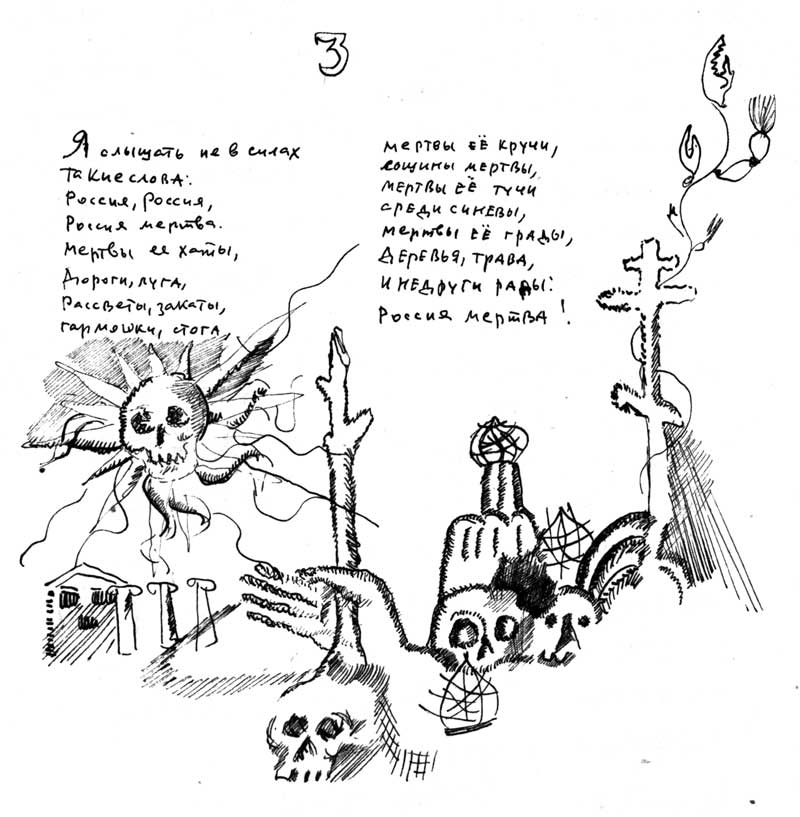 3
Я слышать не в силах
такие слова:
Россия, Россия,
Россия мертва.
Мертвы ее хаты,
Дороги, луга,
Рассветы, закаты,
гармошки, стога,
мертвы её кручи,
лощины мертвы,
мертвы её тучи
среди синевы,
мертвы её грады,
Деревья, трава,
и недруги рады:
Россия мертва!